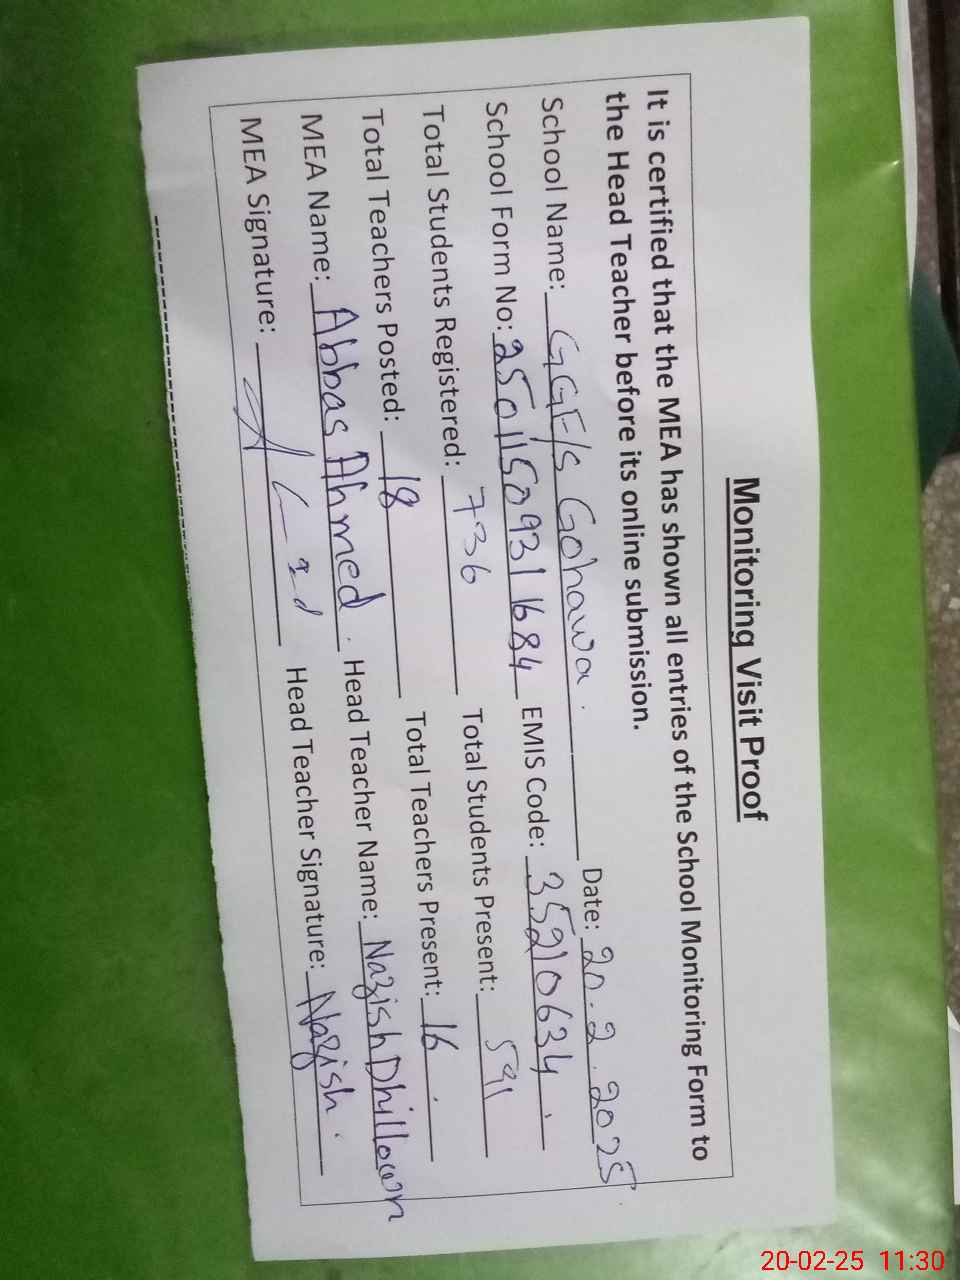 Monitoring Visit Proof
It is certified that the MEA has shown all entries of the School Monitoring Form to
the Head Teacher before its online submission.
School Name: GGE/S Gohawa. Date: 20.2.2025
School Form No: 25011509311684 EMIS Code: 35210634.
Total Students Registered: 736 Total Students Present: 591
Total Teachers Posted: 18 Total Teachers Present: 16.
MEA Name: Abbas Ahmed. Head Teacher Name: Nazish Dhillown
MEA Signature: Head Teacher Signature: Nazish.
20-02-25 11:30